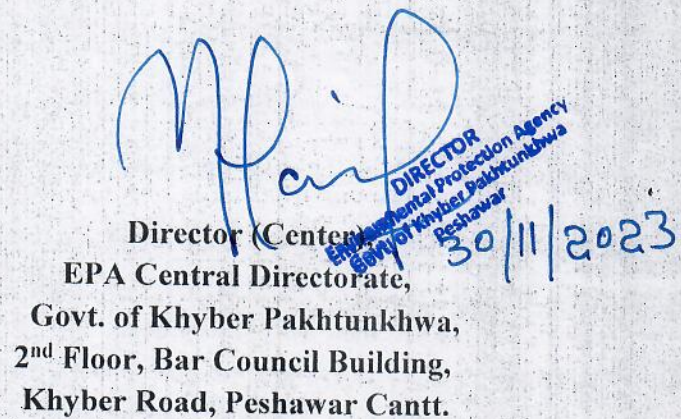 DIRECTOR
Environmental Protection Agency
Govt: of Khyber Pakhtunkhwa
Peshawar
30/11/2023
Director (Center),
EPA Central Directorate,
Govt. of Khyber Pakhtunkhwa,
2nd Floor, Bar Council Building,
Khyber Road, Peshawar Cantt.